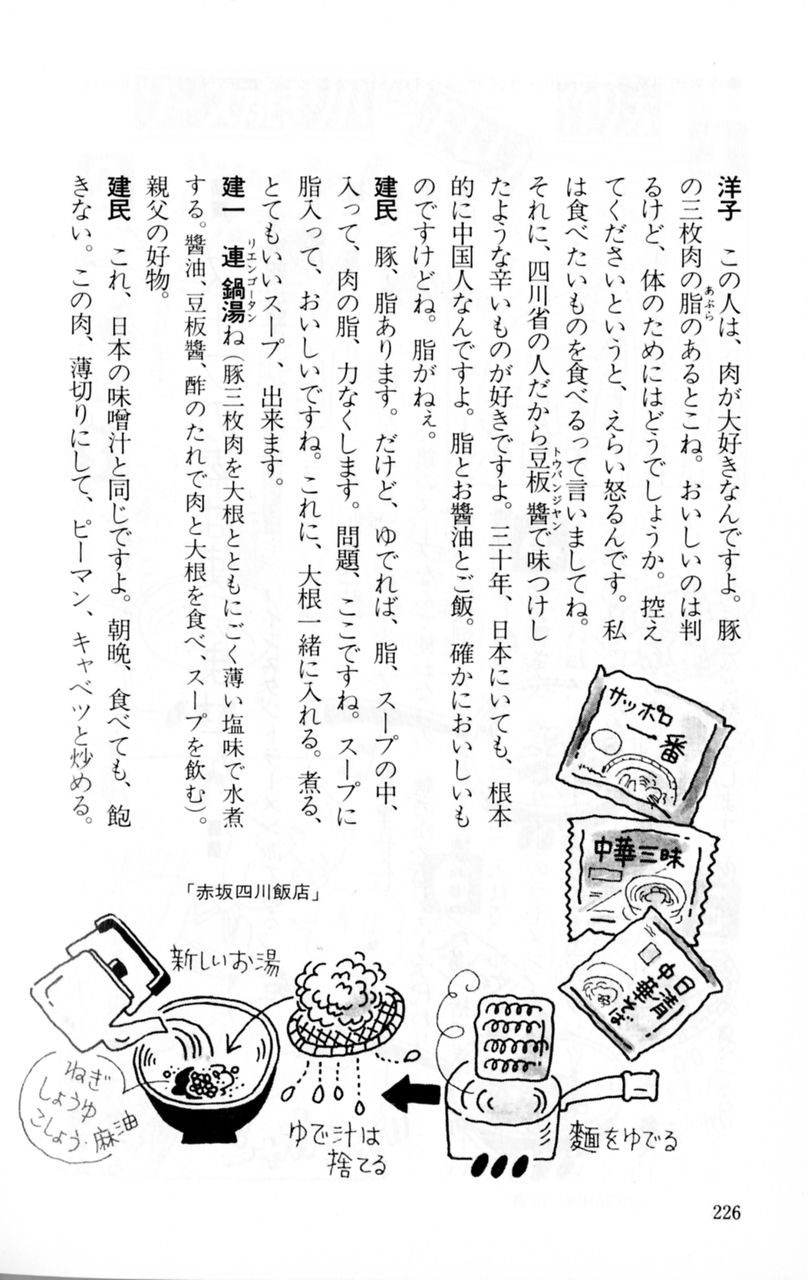 洋子　この人は、肉が大好きなんですよ。豚
の三枚肉の脂のあるとこね。おいしいのは判
るけど、体のためにはどうでしょうか。控え
てくださいというと、えらい怒るんです。私
は食べたいものを食べるって言いましてね。
それに、四川省の人だから豆板醬で味つけし
たような辛いものが好きですよ。三十年、日本にいても、根本
的に中国人なんですよ。脂とお醬油とご飯。確かにおいしいも
のですけどね。脂がねぇ。
建民　豚、脂あります。だけど、ゆでれば、脂、スープの中、
入って、肉の脂、力なくします。問題、ここですね。スープに
脂入って、おいしいですね。これに、大根一緒に入れる。煮る、
とてもいいスープ、出来ます。
建一　連鍋湯ね（豚三枚肉を大根とともにごく薄い塩味で水煮
する。醬油、豆板醬、酢のたれで肉と大根を食べ、スープを飲む）。
親父の好物。
建民　これ、日本の味噌汁と同じですよ。朝晩、食べても、飽
きない。この肉、薄切りにして、ピーマン、キャベツと炒める。
あぶら
トウバンジャン
リエンゴータン
サッポロ
一番
中華三昧
日清
中華そば
「赤坂四川飯店」
麺をゆでる
ゆで汁は
捨てる
新しいお湯
ねぎ
しょうゆ
こしょう・麻油
226